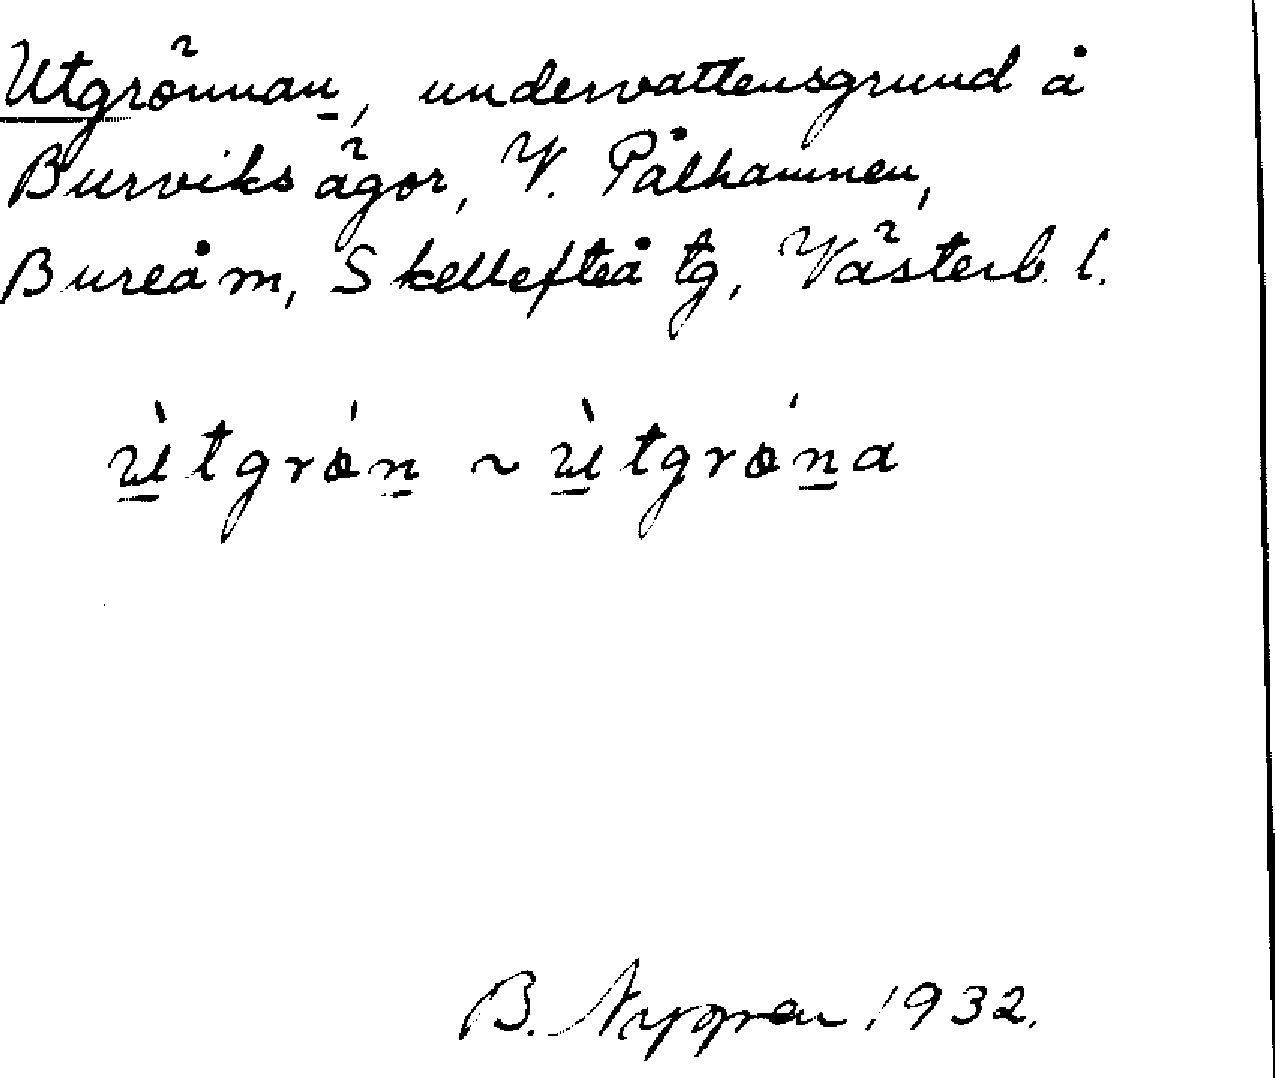 Utgrönnan, undervattensgrund å
Burviks ägor, V. Pålhamnen,
Bureå m, Skellefteå tg, Västerb. l.
ùtgrön ~ ùtgröna
B. Nygren 1932.